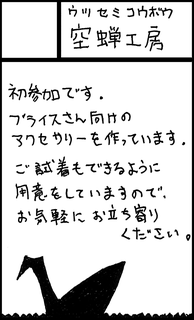 ウツセミコウボウ
空蝉工房
初参加です。
ブライスさん向けの
アクセサリーを作っています。
ご試着もできるように
用意をしていますので、
お気軽にお立ち寄り
ください。